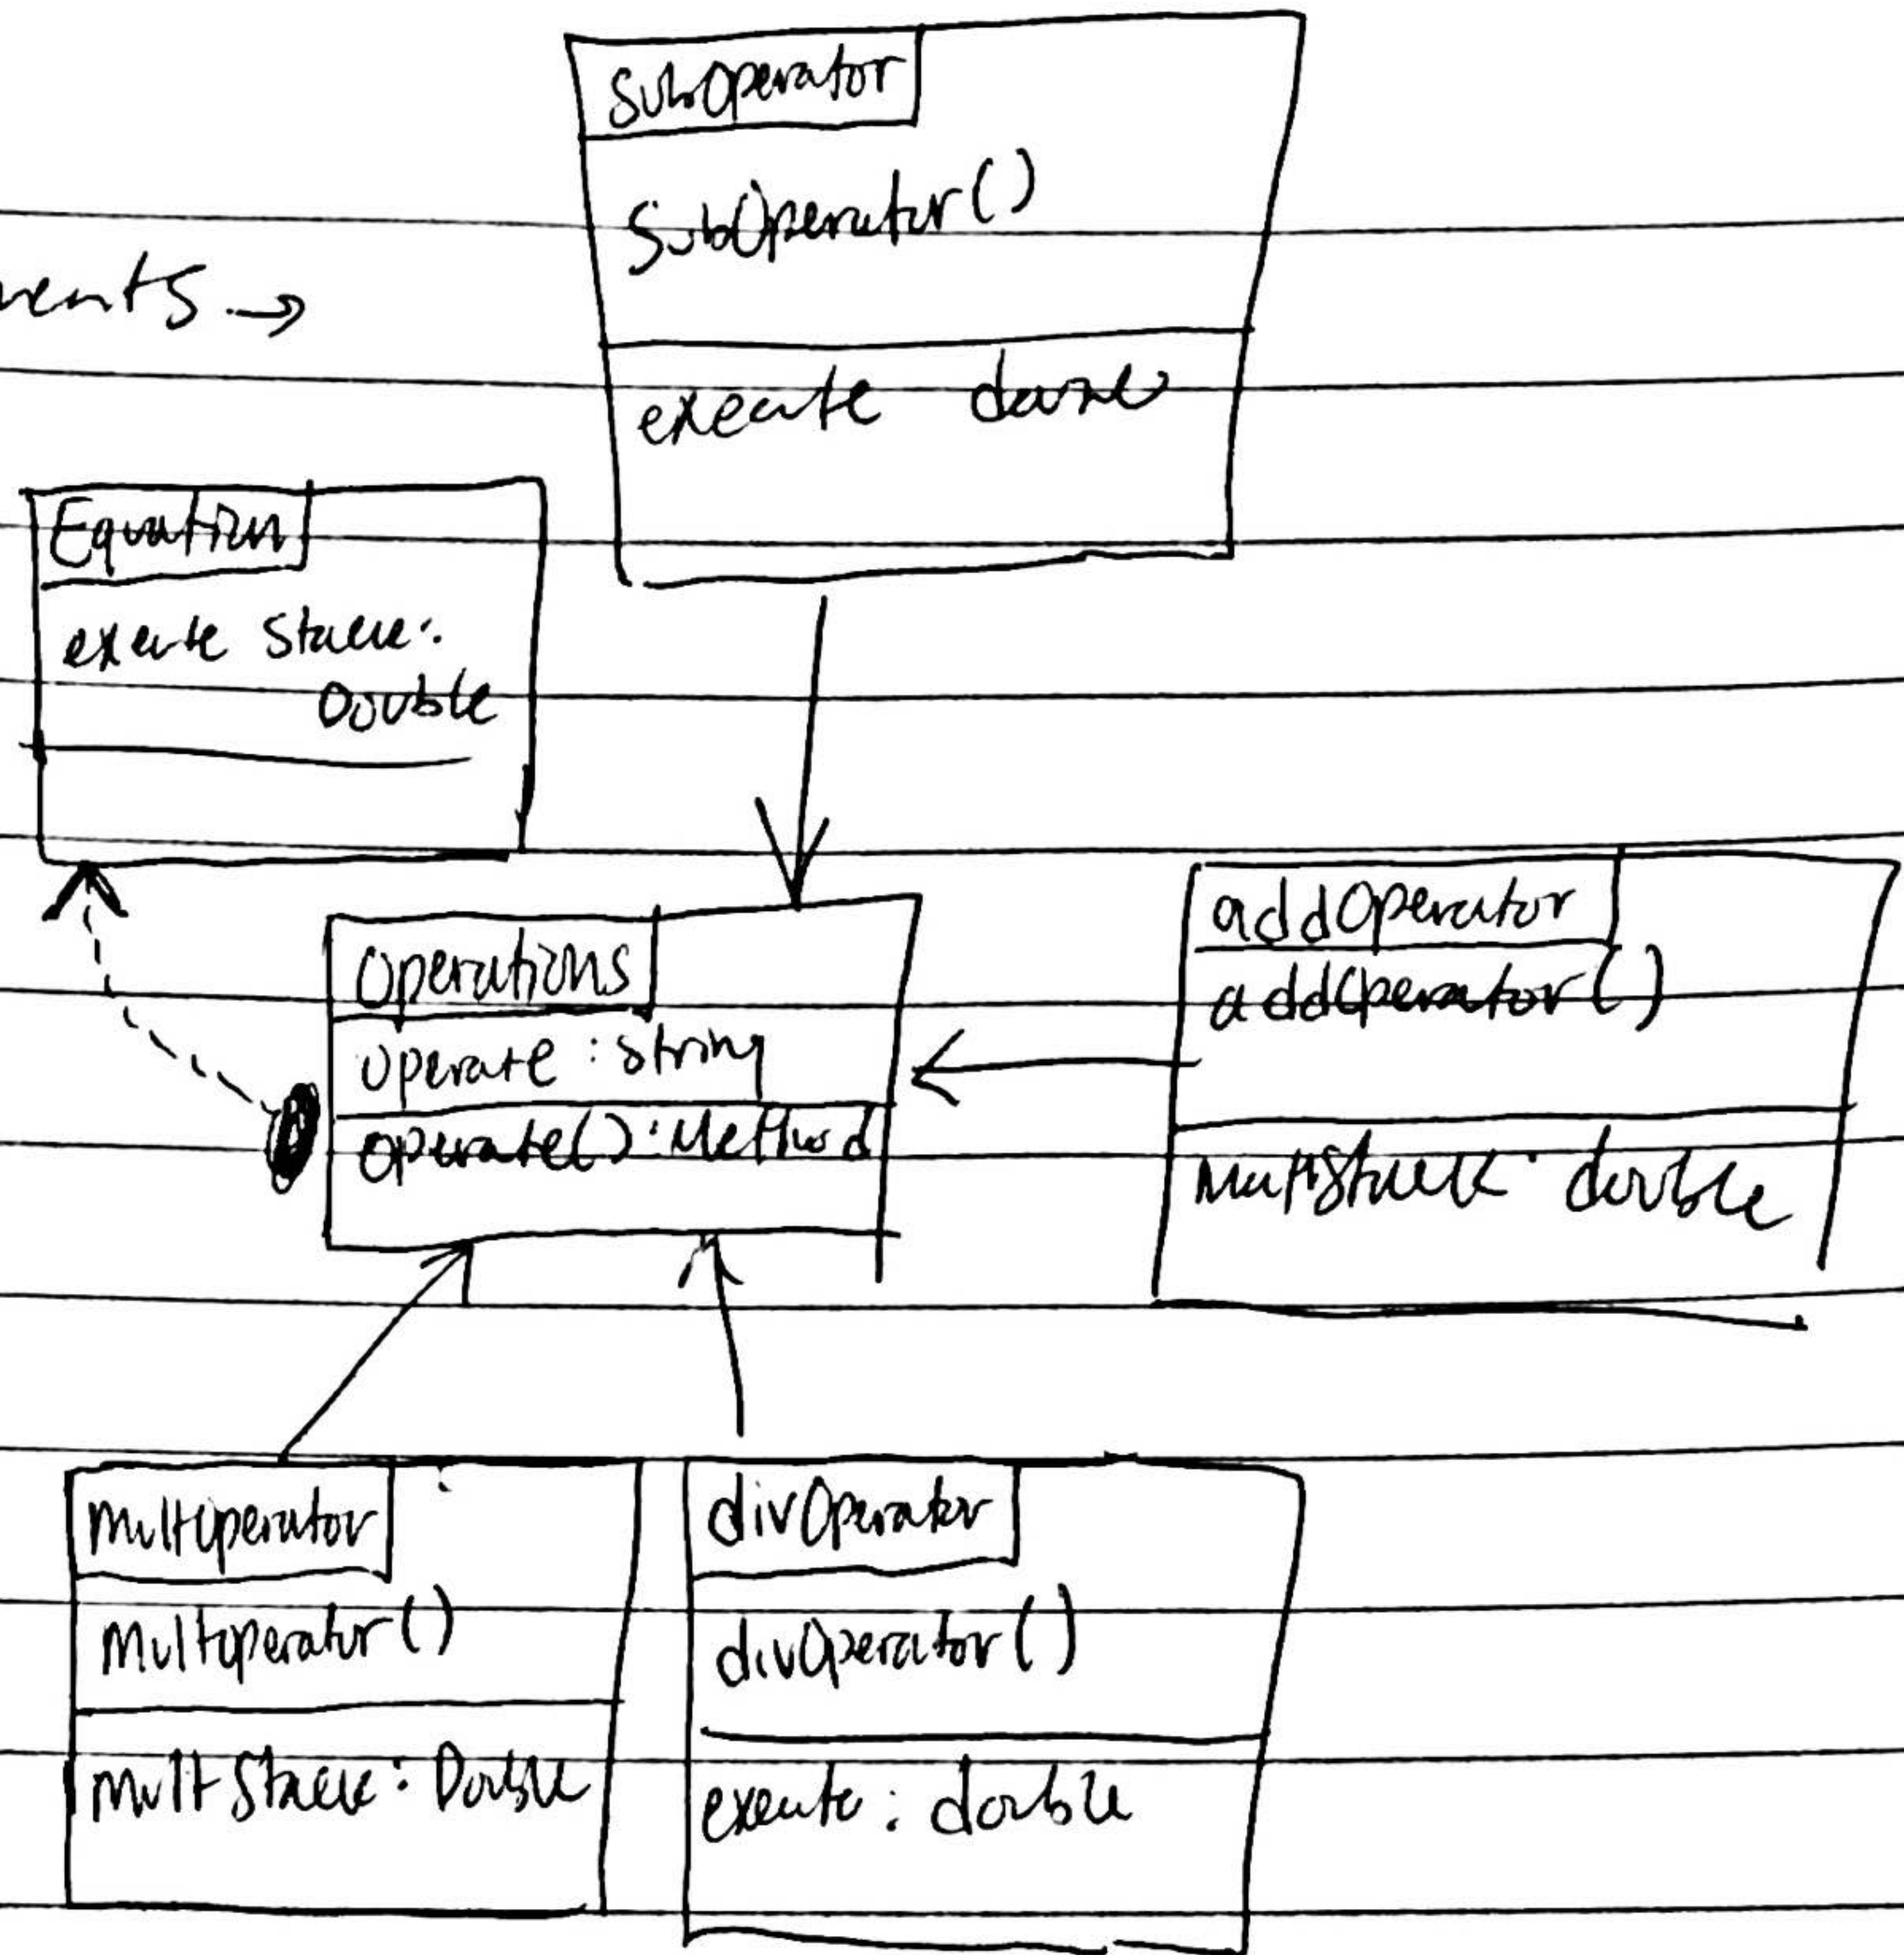 SubOperator
SubOperator()
execute
Equation
execute Stack:
Double
Operations
operate : string
operate() : Method
addOperator
addOperator()
multStack: double
multOperator
multOperator()
multStack : Double
divOperator
divOperator()
execute : double